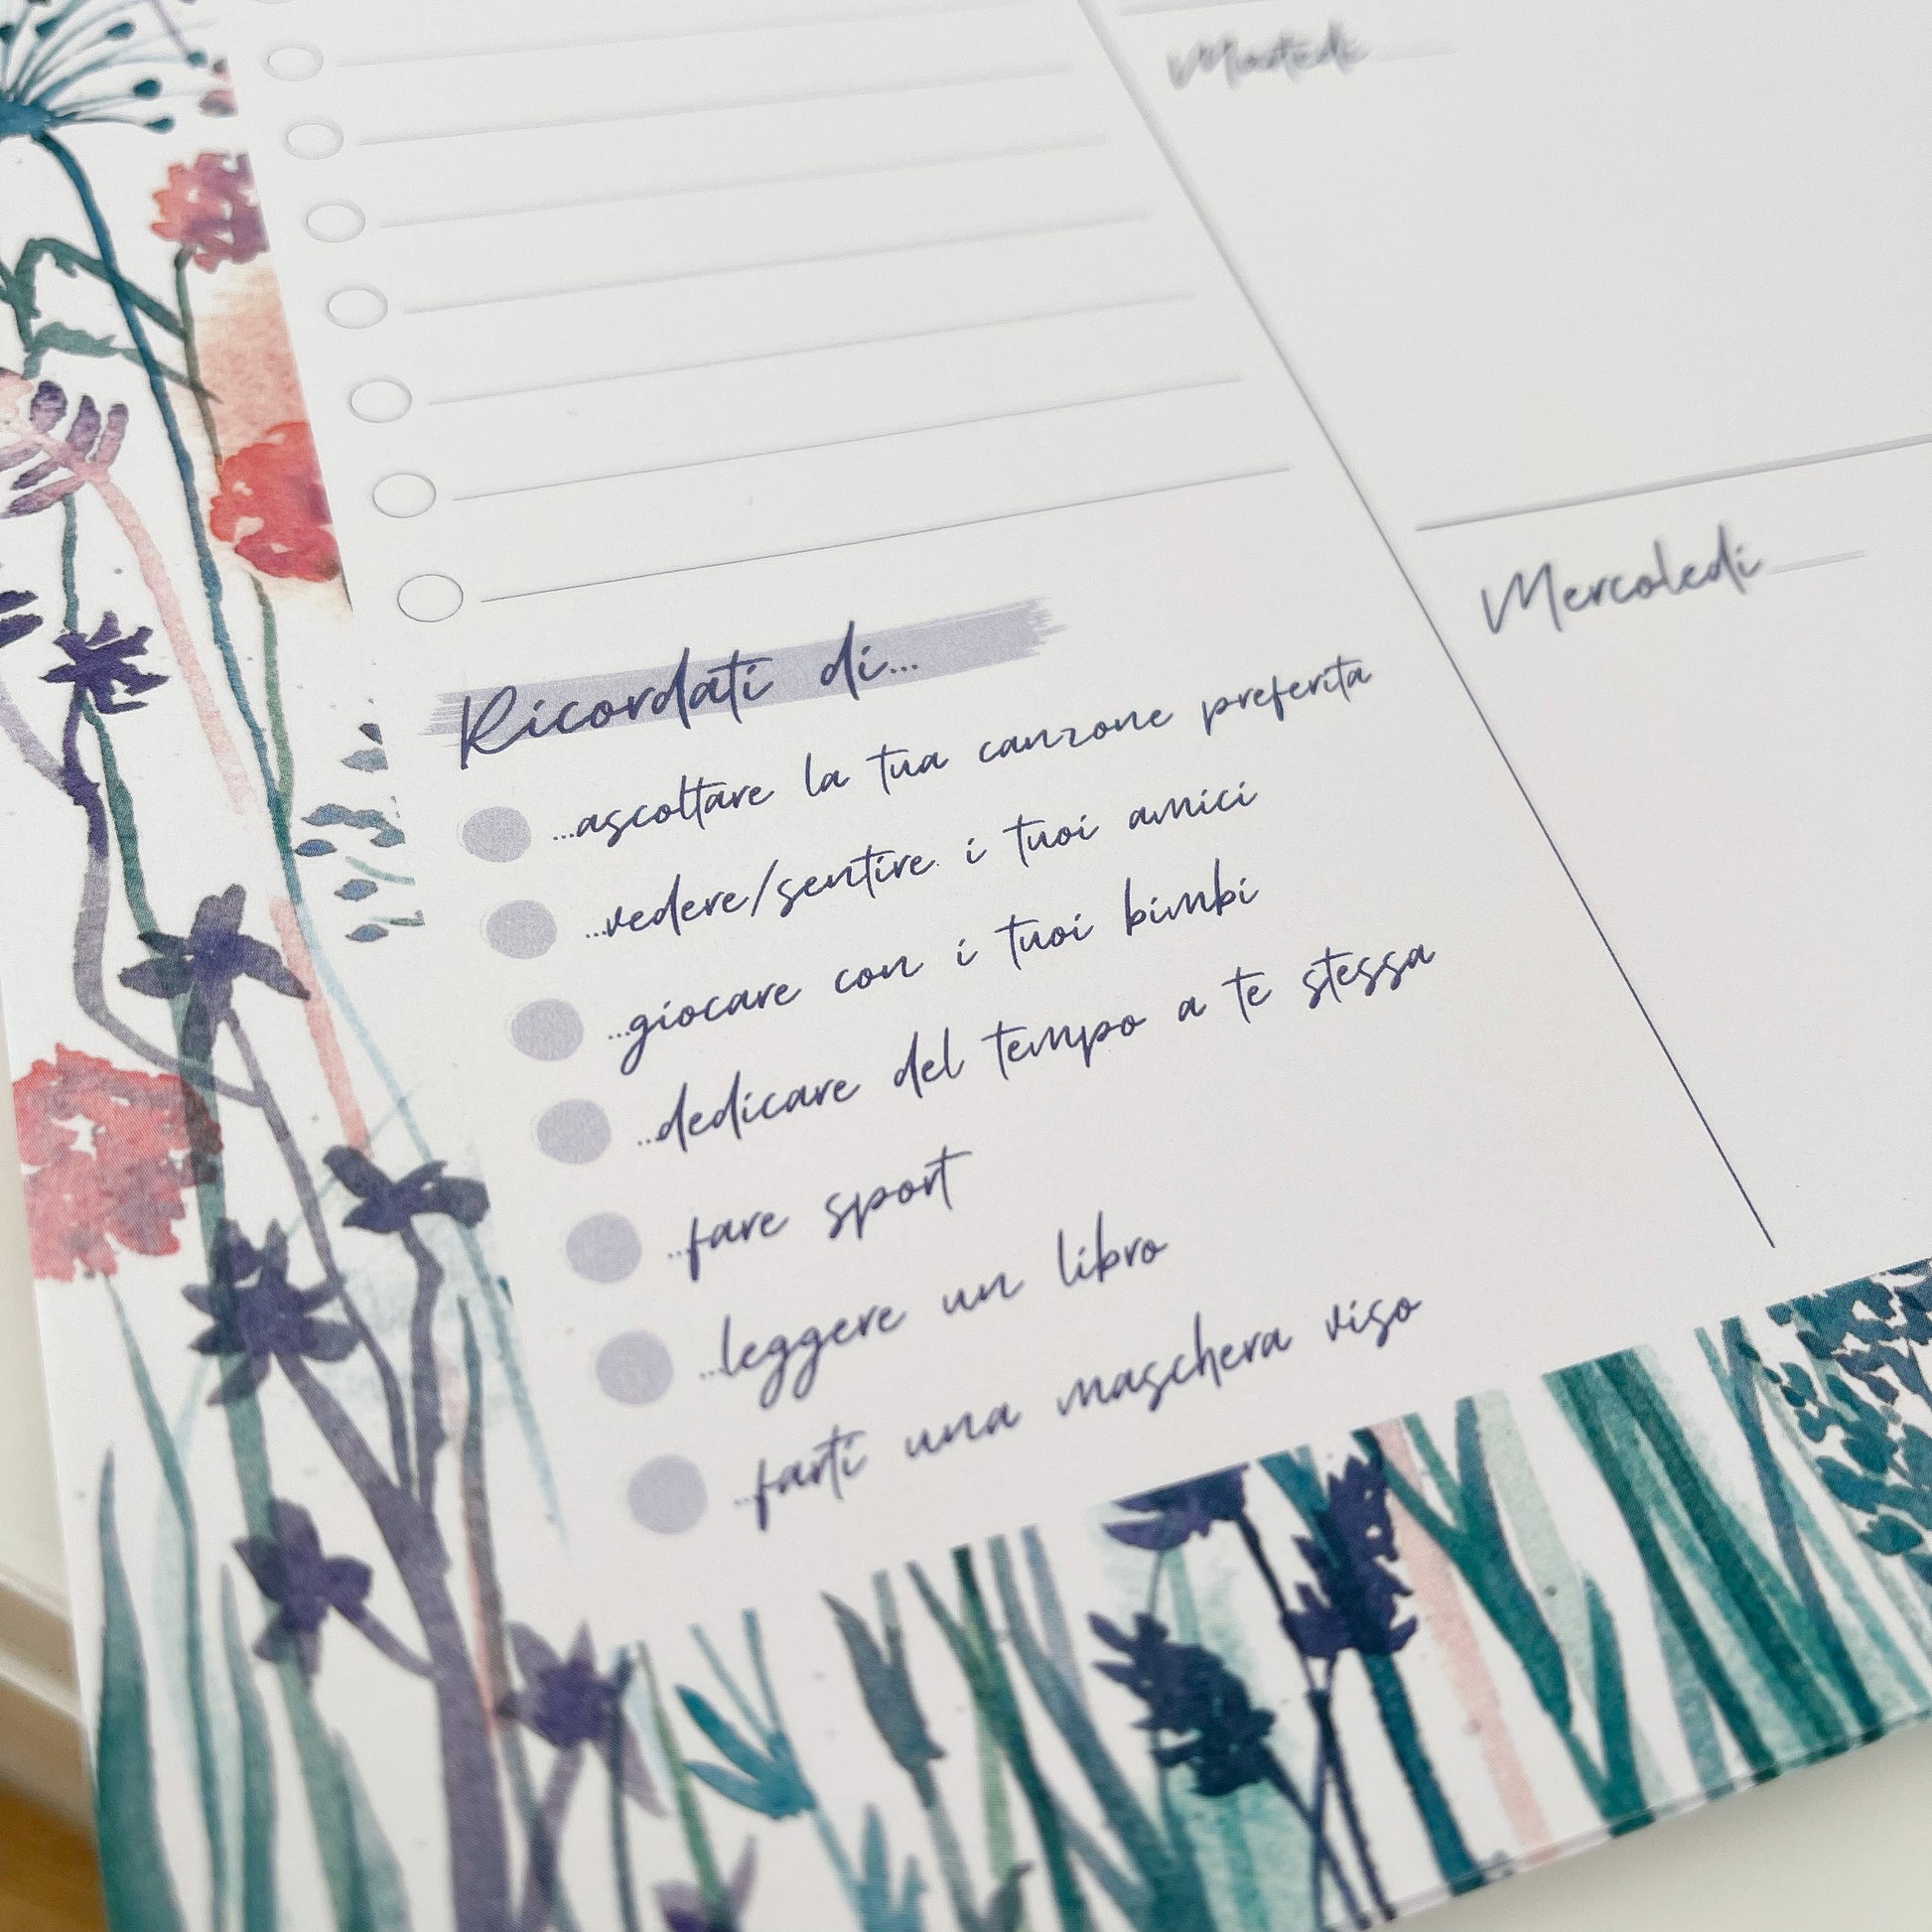 Martedì
Mercoledì
Ricordati di...
...ascoltare la tua canzone preferita
...vedere/sentire i tuoi amici
...giocare con i tuoi bimbi
...dedicare del tempo a te stessa
...fare sport
...leggere un libro
...farti una maschera viso